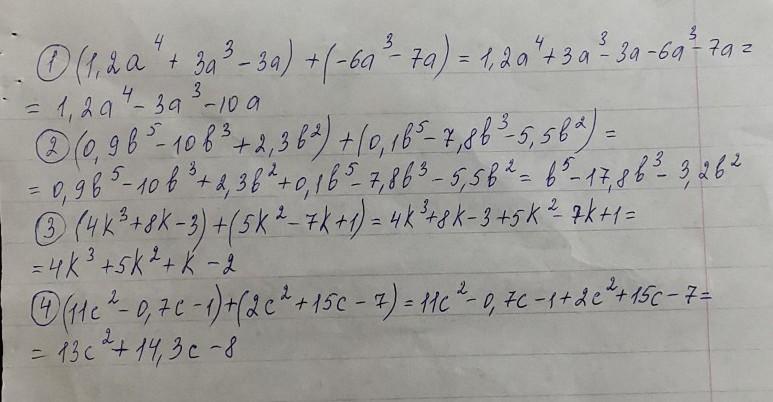 ① (1,2a⁴ + 3a³ - 3a) + (-6a³ - 7a) = 1,2a⁴ + 3a³ - 3a - 6a³ - 7a =
= 1,2a⁴ - 3a³ - 10a
② (0,9b⁵ - 10b³ + 2,3b²) + (0,1b⁵ - 7,8b³ - 5,5b²) =
= 0,9b⁵ - 10b³ + 2,3b² + 0,1b⁵ - 7,8b³ - 5,5b² = b⁵ - 17,8b³ - 3,2b²
③ (4k³ + 8k - 3) + (5k² - 7k + 1) = 4k³ + 8k - 3 + 5k² - 7k + 1 =
= 4k³ + 5k² + k - 2
④ (11c² - 0,7c - 1) + (2c² + 15c - 7) = 11c² - 0,7c - 1 + 2c² + 15c - 7 =
= 13c² + 14,3c - 8